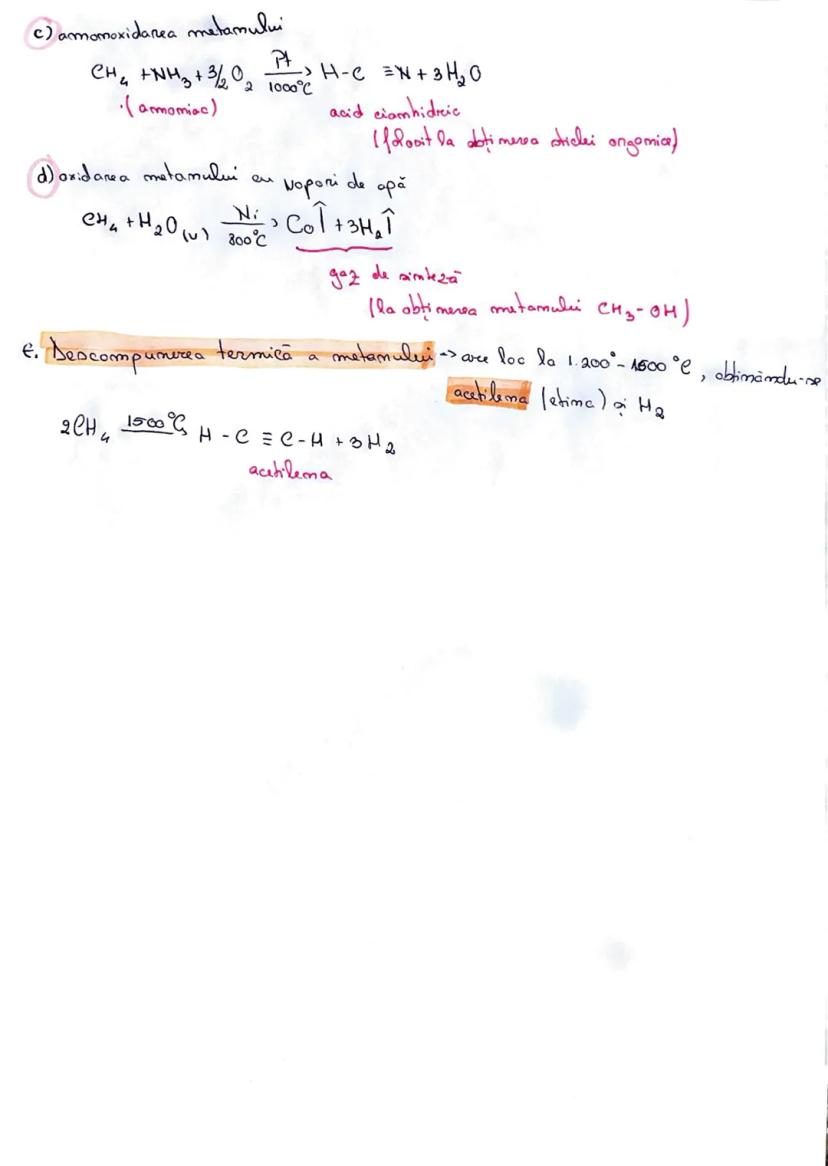 c) amonoxidarea metanului
CH₄ + NH₃ + 3/2 O₂ Pt 1000°C → H-C ≡N + 3H₂O
(amoniac) acid cianhidric
(folosit la obținerea sticlei organice)
d) oxidarea metanului cu vapori de apă
CH₄ + H₂O(v) Ni 800°C → CO↑ + 3H₂↑
gaz de sinteză
(la obținerea metanului CH₃-OH)
E. Descompunerea termică a metanului → are loc la 1.200°- 1500 °C, obținându-se
acetilena (etina) și H₂
2CH₄ 1500°C → H-C≡C-H + 3H₂
acetilena